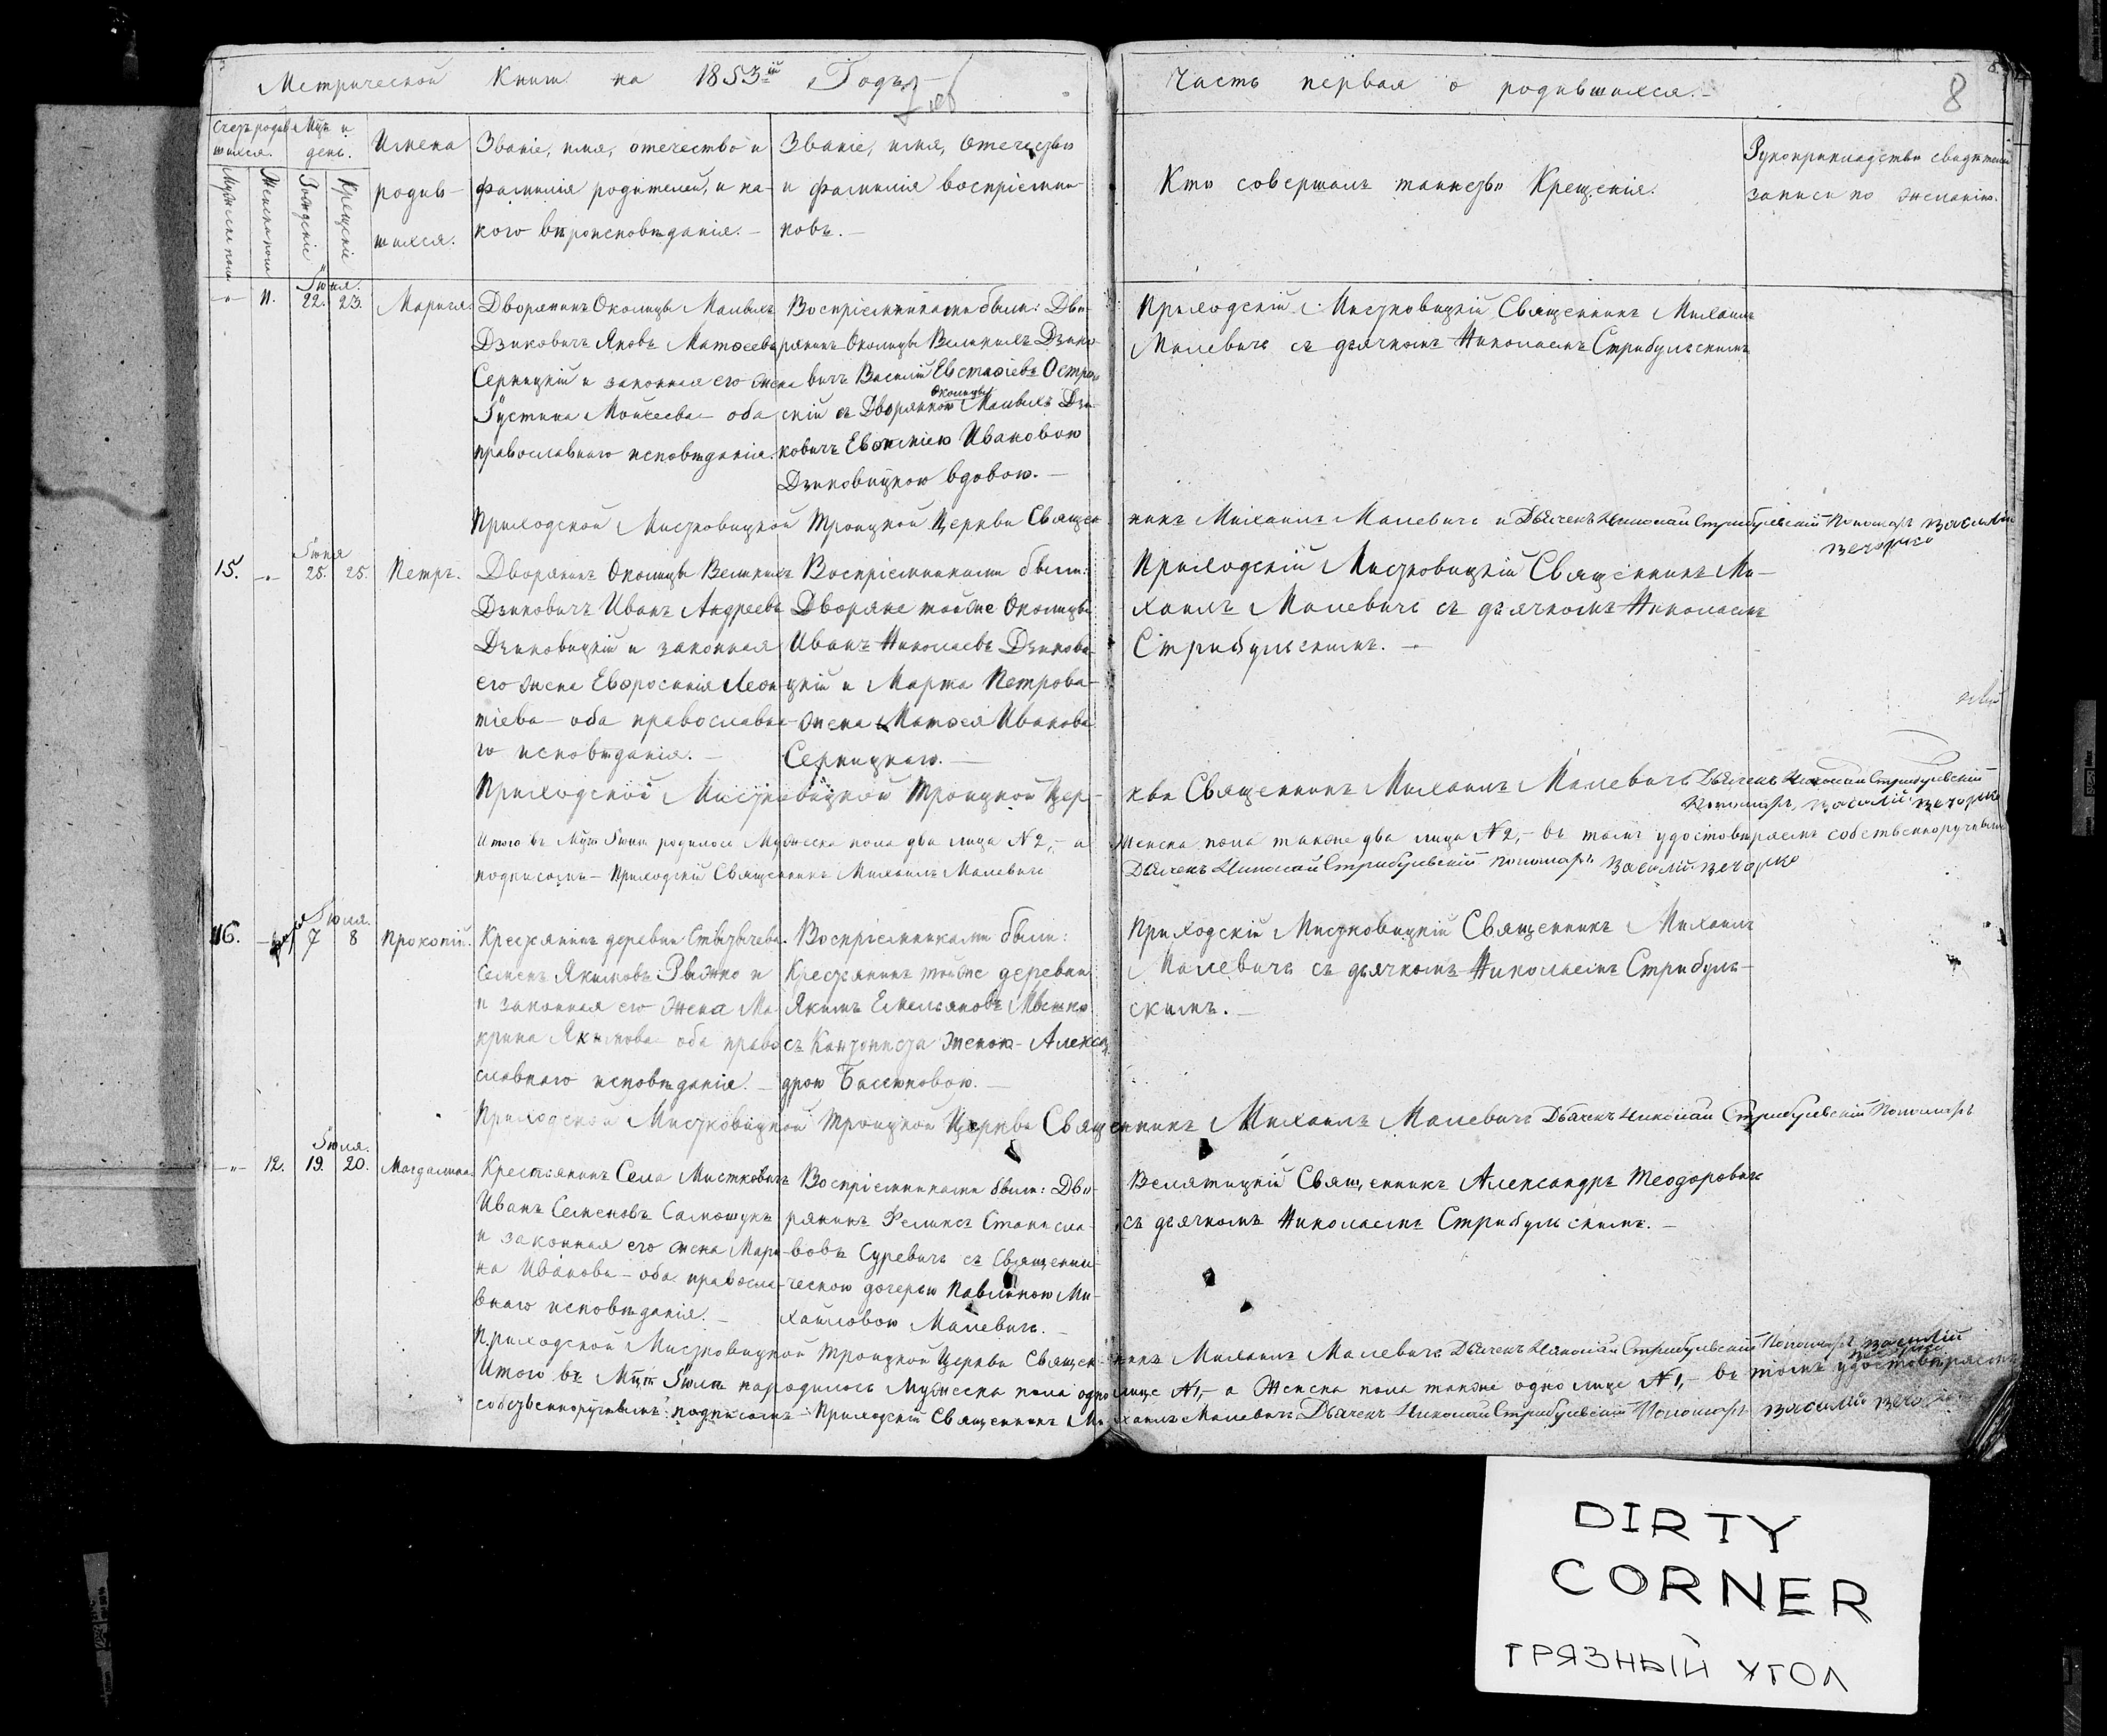 Метрической Книги на 1853й Годъ
Часть первая о родившихся.
8
Счетъ родив
шихся.
Мцъ и
день.
Мужеска пола
Женска пола
Рождение
Крещение
Имена
родив-
шихся.
Званіе, имя, отечество и
фамилія родителей, и ка-
кого вѣроисповѣданія. —
Званіе, имя, отечество
и фамилія воспріемни-
ковъ. —
Кто совершалъ таинство Крещенія.
Рукоприкладство свидѣтелей
записи по желанію.
Іюня.
11. 22. 23. Марія.
Дворянинъ Околицы Малыхъ
Дзиковичъ Яковъ Матѳеевъ
Серницкій и законная его жена
Іустина Моисеева — оба
православнаго исповѣданія.
Воспріемниками были: Дво-
рянинъ Околицы Великихъ Дзико-
вичъ Василій Евстаѳіевъ Остров-
скій съ Дворянкою Околицы Малыхъ Дзи-
ковичъ Евѳиміею Ивановою
Дзиковицкою вдовою. —
Приходскій Мистковицкій Священникъ Михаилъ
Малевичъ съ дьячкомъ Николаемъ Стрибульскимъ
Приходской Мистковицкой Троицкой Церкви Священ-
никъ Михаилъ Малевичъ и Дьячекъ Николай Стрибульскій Пономарь Василій
Вечорко
Іюня
15. 25. 25. Петръ.
Дворянинъ Околицы Великихъ
Дзиковичъ Иванъ Андреевъ
Дзиковицкій и законная
его жена Евфросинія Леон-
тіева — оба православна-
го исповѣданія. —
Воспріемниками были:
Дворяне тойже Околицы
Иванъ Николаевъ Дзикови-
цкій и Марѳа Петрова-
жена Матѳея Иванова
Серницкаго. —
Приходскій Мистковицкій Священникъ Ми-
хаилъ Малевичъ съ дьячкомъ Николаемъ
Стрибульскимъ. —
Приходской Мистковицкой Троицкой Цер-
кви Священникъ Михаилъ Малевичъ Дьячекъ Николай Стрибульскій
Пономарь Василій Вечорко
Итого въ Мцѣ Іюнѣ родилось Мужеска пола два лица №2, — а
Женска пола также два лица №2, — въ томъ удостовѣряемъ собственноручнымъ
подписомъ — Приходскій Священникъ Михаилъ Малевичъ
Дьячекъ Николай Стрибульскій пономарь Василій Вечорко
Іюля.
16. 7 8 Прокопій.
Крестянинъ деревни
Семенъ Якимовъ и
и законная его жена Ма-
крина Якимова оба право-
славнаго исповѣданія. —
Воспріемниками были:
Крестянинъ тойже деревни
Якимъ Емельяновъ Мышко
съ Кантониста женою — Алексан-
дрою Басиковою. —
Приходскій Мистковицкій Священникъ Михаилъ
Малевичъ съ дьячкомъ Николаемъ Стрибуль-
скимъ. —
Приходской Мистковицкой Троицкой Церкви Свящ-
енникъ Михаилъ Малевичъ Дьячекъ Николай Стрибульскій Пономарь
Іюля.
12. 19. 20. Магдалина
Крестянинъ Села Мистковичъ
Иванъ Семеновъ Самошукъ
и законная его жена Мари-
на Иванова — оба правосла-
внаго исповѣданія. —
Воспріемниками были: Дво-
рянинъ Феликсъ Станисла-
вовъ Суревичъ съ Священни-
ческою дочерью Павлиною Ми-
хаиловою Малевичъ. —
Велятицкій Священникъ Александръ Теодоровичъ
съ дьячкомъ Николаемъ Стрибульскимъ. —
Приходской Мистковицкой Троицкой Церкви Священ-
никъ Михаилъ Малевичъ Дьячекъ Николай Стрибульскій Пономарь Василій
Вечорко
Итого въ Мцѣ Іюлѣ народилось Мужеска пола одно лице №1, — а Женска пола также одно лице №1, — въ томъ удостовѣряемъ
собственноручнымъ подписомъ — Приходскій Священникъ Михаилъ Малевичъ Дьячекъ Николай Стрибульскій Пономарь Василій Вечорко
DIRTY
CORNER
ГРЯЗНЫЙ УГОЛ